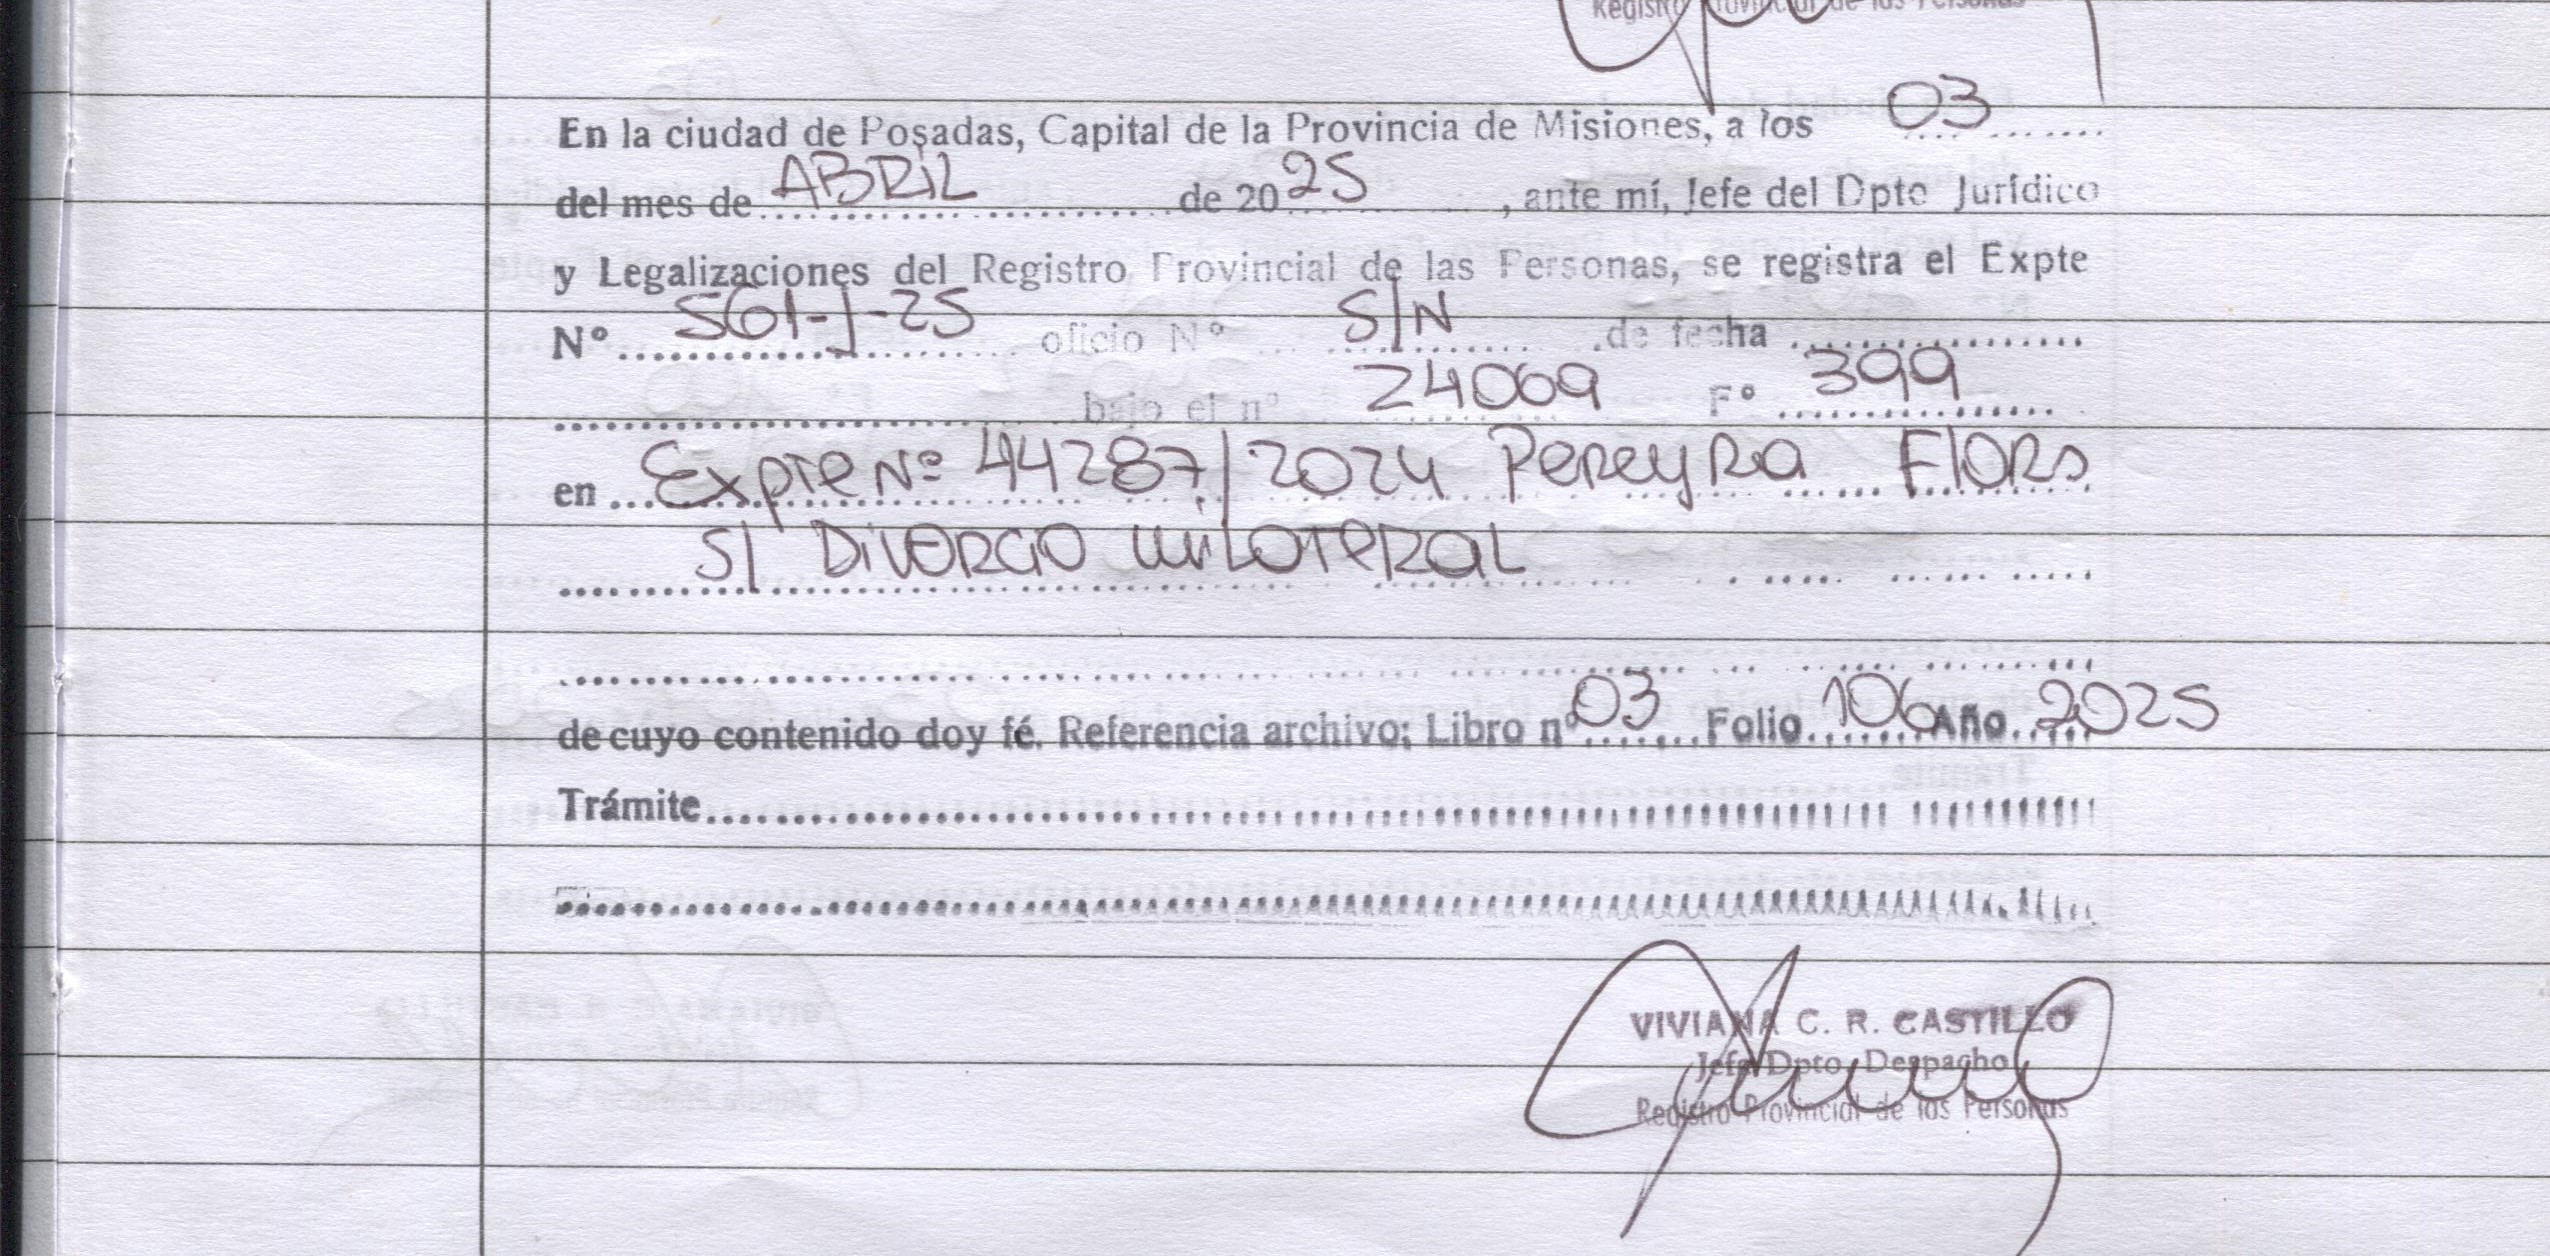 Registro Provincial de las Personas
En la ciudad de Posadas, Capital de la Provincia de Misiones, a los 03
del mes de ABRIL de 2025, ante mí, Jefe del Dpto Jurídico
y Legalizaciones del Registro Provincial de las Personas, se registra el Expte
Nº 561-J-25 oficio Nº S/N de fecha
bajo el nº 24069 Fº 399
en Expte Nº 44287/2024 Pereyra Flors
S/ DIVORCIO UNILATERAL
de cuyo contenido doy fé. Referencia archivo; Libro nº 03 Folio 106 Año 2025
Trámite
VIVIANA C. R. CASTILLO
Jefa Dpto. Despacho
Registro Provincial de las Personas